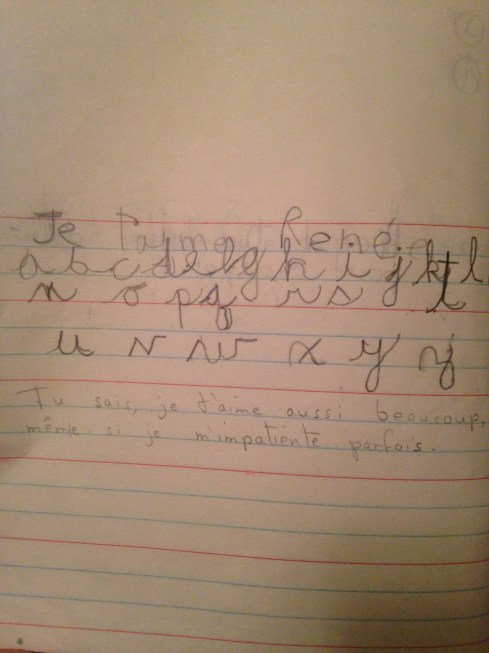 Je t'aime Renée
a b c d e f g h i j k l
n o p q r s t
u v w x y z
Tu sais, je t'aime aussi beaucoup,
même si je m'impatiente parfois.